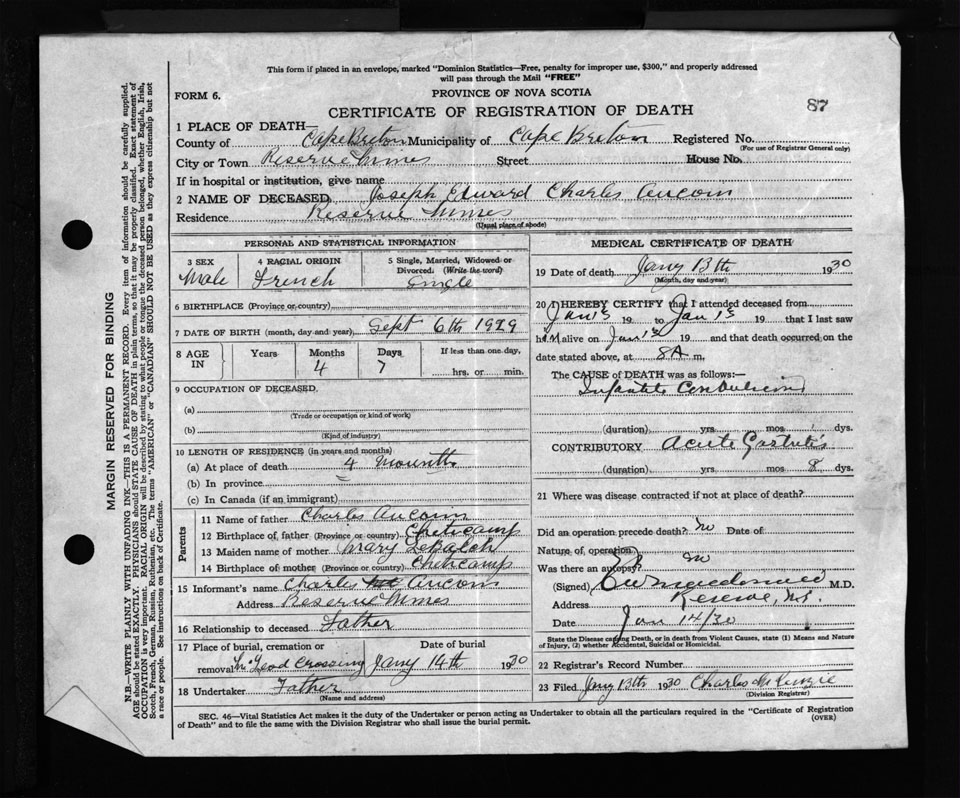 This form if placed in an envelope, marked "Dominion Statistics—Free, penalty for improper use, $300," and properly addressed
will pass through the Mail "FREE"
FORM 6.
PROVINCE OF NOVA SCOTIA
CERTIFICATE OF REGISTRATION OF DEATH
87
1 PLACE OF DEATH—
County of Cape Breton Municipality of Cape Breton Registered No.
(For use of Registrar General only)
City or Town Reserve Mines Street House No.
If in hospital or institution, give name
2 NAME OF DECEASED Joseph Edward Charles Aucoin
Residence Reserve Mines
(Usual place of abode)
PERSONAL AND STATISTICAL INFORMATION
3 SEX 4 RACIAL ORIGIN 5 Single, Married, Widowed or
Divorced. (Write the word)
Male French Single
6 BIRTHPLACE (Province or country)
7 DATE OF BIRTH (month, day and year) Sept 6th 1929
8 AGE IN Years Months Days If less than one day,
4 7 hrs. or min.
9 OCCUPATION OF DECEASED.
(a)
(Trade or occupation or kind of work)
(b)
(Kind of industry)
10 LENGTH OF RESIDENCE (in years and months)
(a) At place of death 4 Mounths
(b) In province
(c) In Canada (if an immigrant)
Parents
11 Name of father Charles Aucoin
12 Birthplace of father (Province or country) Cheticamp
13 Maiden name of mother Mary
14 Birthplace of mother (Province or country) Cheticamp
15 Informant's name Charles Aucoin
Address Reserve Mines
16 Relationship to deceased Father
17 Place of burial, cremation or Date of burial
removal Crossing Jany 14th 1930
18 Undertaker Father
(Name and address)
MEDICAL CERTIFICATE OF DEATH
19 Date of death Jany 13th 1930
(Month, day and year)
20 I HEREBY CERTIFY that I attended deceased from
Jan 13 19 to Jan 13 19 that I last saw
him alive on Jan 13 19 and that death occurred on the
date stated above, at 8A m.
The CAUSE of DEATH was as follows:—
Infantile Convulsions
(duration) yrs. mos. 1 dys.
CONTRIBUTORY Acute Gastritis
(duration) yrs. mos. 8 dys.
21 Where was disease contracted if not at place of death?
Did an operation precede death? no Date of
Nature of operation
Was there an autopsy? no
(Signed) M.D.
Address Reserve, N.S.
Date Jan 14/30
State the Disease causing Death, or in death from Violent Causes, state (1) Means and Nature
of Injury, (2) whether Accidental, Suicidal or Homicidal.
22 Registrar's Record Number
23 Filed Jany 13th 1930 Charles McKenzie
(Division Registrar)
SEC. 46—Vital Statistics Act makes it the duty of the Undertaker or person acting as Undertaker to obtain all the particulars required in the "Certificate of Registration
of Death" and to file the same with the Division Registrar who shall issue the burial permit.
(OVER)
MARGIN RESERVED FOR BINDING
N.B.—WRITE PLAINLY WITH UNFADING INK—THIS IS A PERMANENT RECORD. Every item of information should be carefully supplied.
AGE should be stated EXACTLY. PHYSICIANS should STATE CAUSE OF DEATH in plain terms, so that it may be properly classified. Exact statement of
OCCUPATION is very important. RACIAL ORIGIN will be described by stating to what people or tongue the deceased person belonged, whether English, Irish,
Scotch, French, German, Russian, Ruthenian, etc. The terms "AMERICAN" or "CANADIAN" SHOULD NOT BE USED as they express citizenship but not
a race or people. See instructions on back of Certificate.